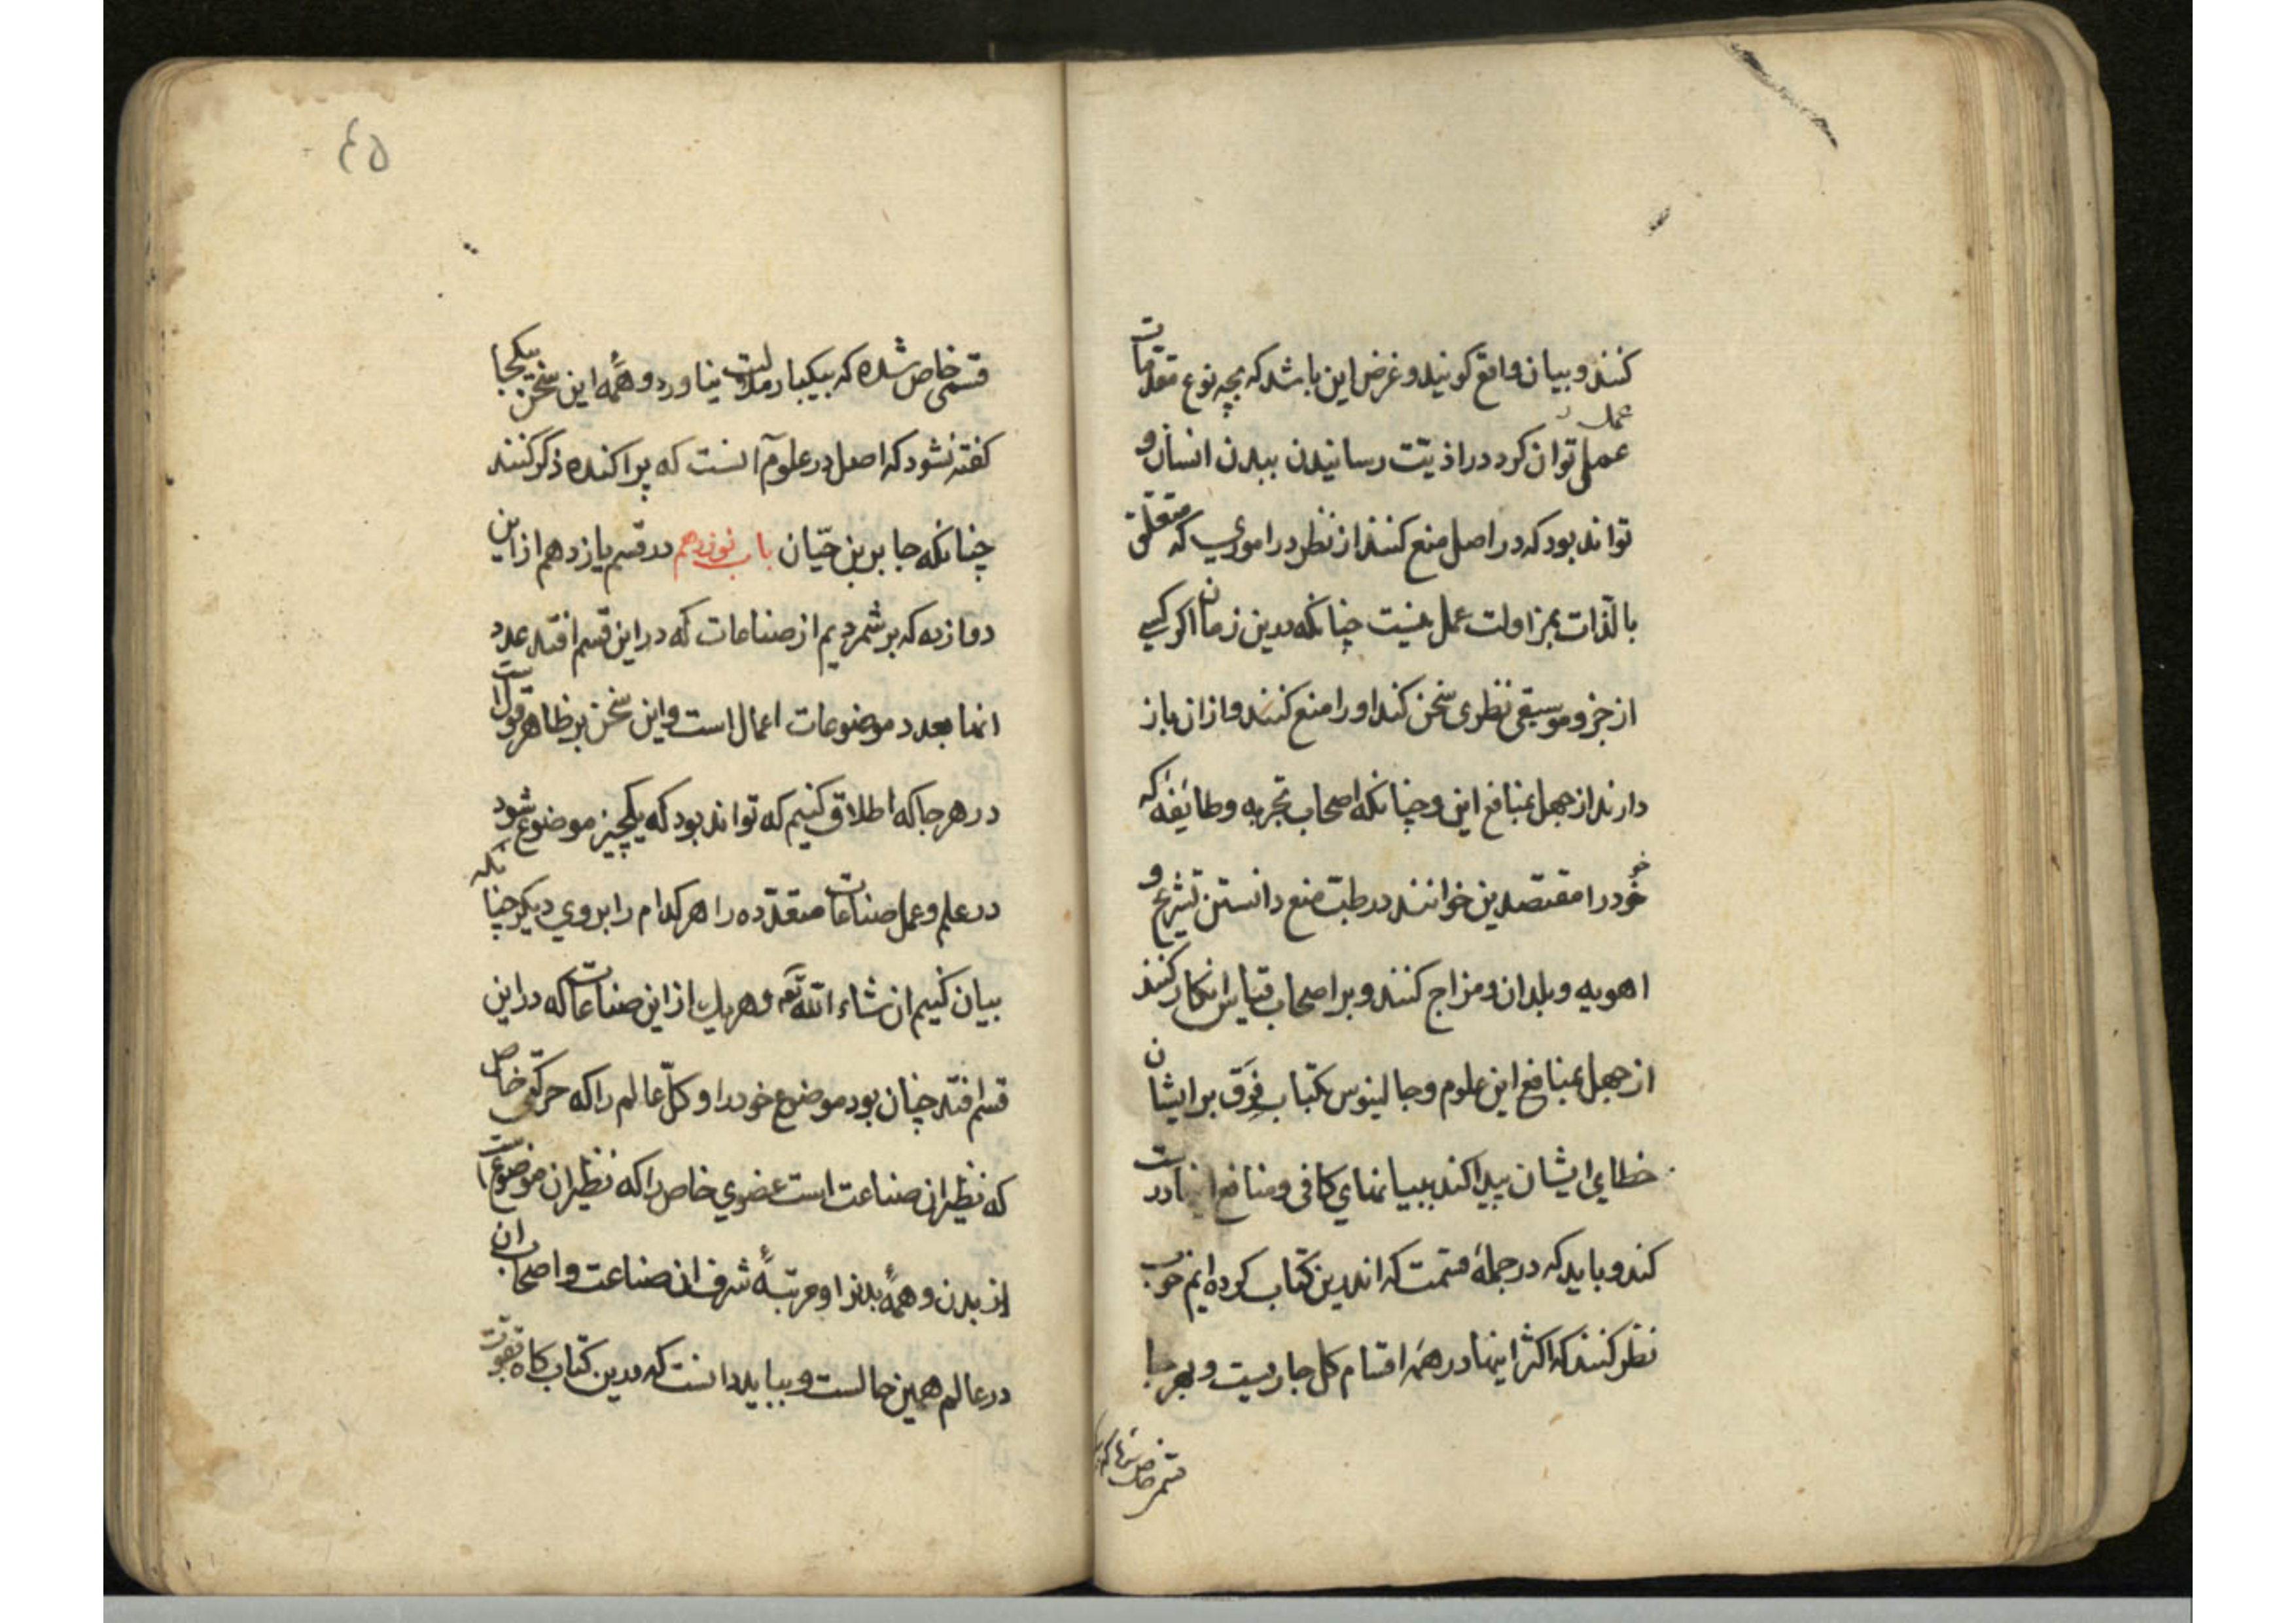 کنند و بیان واقع کویند و غرض این باشد که بچه نوع مقدمات
عمل
عملی توان کرد در اذیت رسانیدن ببدن انسان و
تواند بود که در اصل منع کنند از نظر در اموری که متعلق
بالذات بمزاولت عمل نیست چنانکه درین زمان اکر کسی
از جزو موسیقی نظری سخن کند او را منع کنند و از آن باز
دارند از جهل بمنافع این و چنانکه اصحاب تجربه و طایفهٔ که
خود را مقتصدین خوانند در طب منع دانستن تشریح و
اهویه و بلدان و مزاج کنند و بر اصحاب قیاس انکار کنند
از جهل بمنافع این علوم و جالینوس بکتاب فرق بر ایشان
خطای ایشان پیدا کند ببیانهای کافی و منافع
کند و باید که در جملهٔ قسمت که اندرین کتاب کرده ایم خوب
نظر کنند که اکثر اینها در همه اقسام کل جاریست و بهر جا
قسمی خاص شد که
٤٥
قسمی خاص شده که بیکبار ملالت نیاورد و همهٔ این سخن بیکجا
کفته نشود که اصل در علوم آنست که پراکنده ذکر کنند
چنانکه جابر بن حیان باب نوزدهم در قسم یازدهم از این
دوازده که بر شمردیم از صناعات که در این قسم افتد عدد
انها بعدد موضوعات اعمال است و این سخن بر ظاهر قولست
در هر جا که اطلاق کنیم که تواند بود که یکچیز موضوع شود
در علم و عمل صناعات متعدده را هر کدام را بروی دیکر چنانکه
بیان کنیم ان شاء الله تع و هر یک از این صناعات که در این
قسم افتد چنان بود موضوع خود را و کل عالم را که حرکتی خاص
که نظیر ان صناعت است عضوی خاص را که نظیر ان موضوعست
از بدن و همهٔ بدنرا و مرتبهٔ شرف ان صناعت و اصحاب ان
در عالم همین حالست و بباید دانست که درین کتاب کاه بقوت